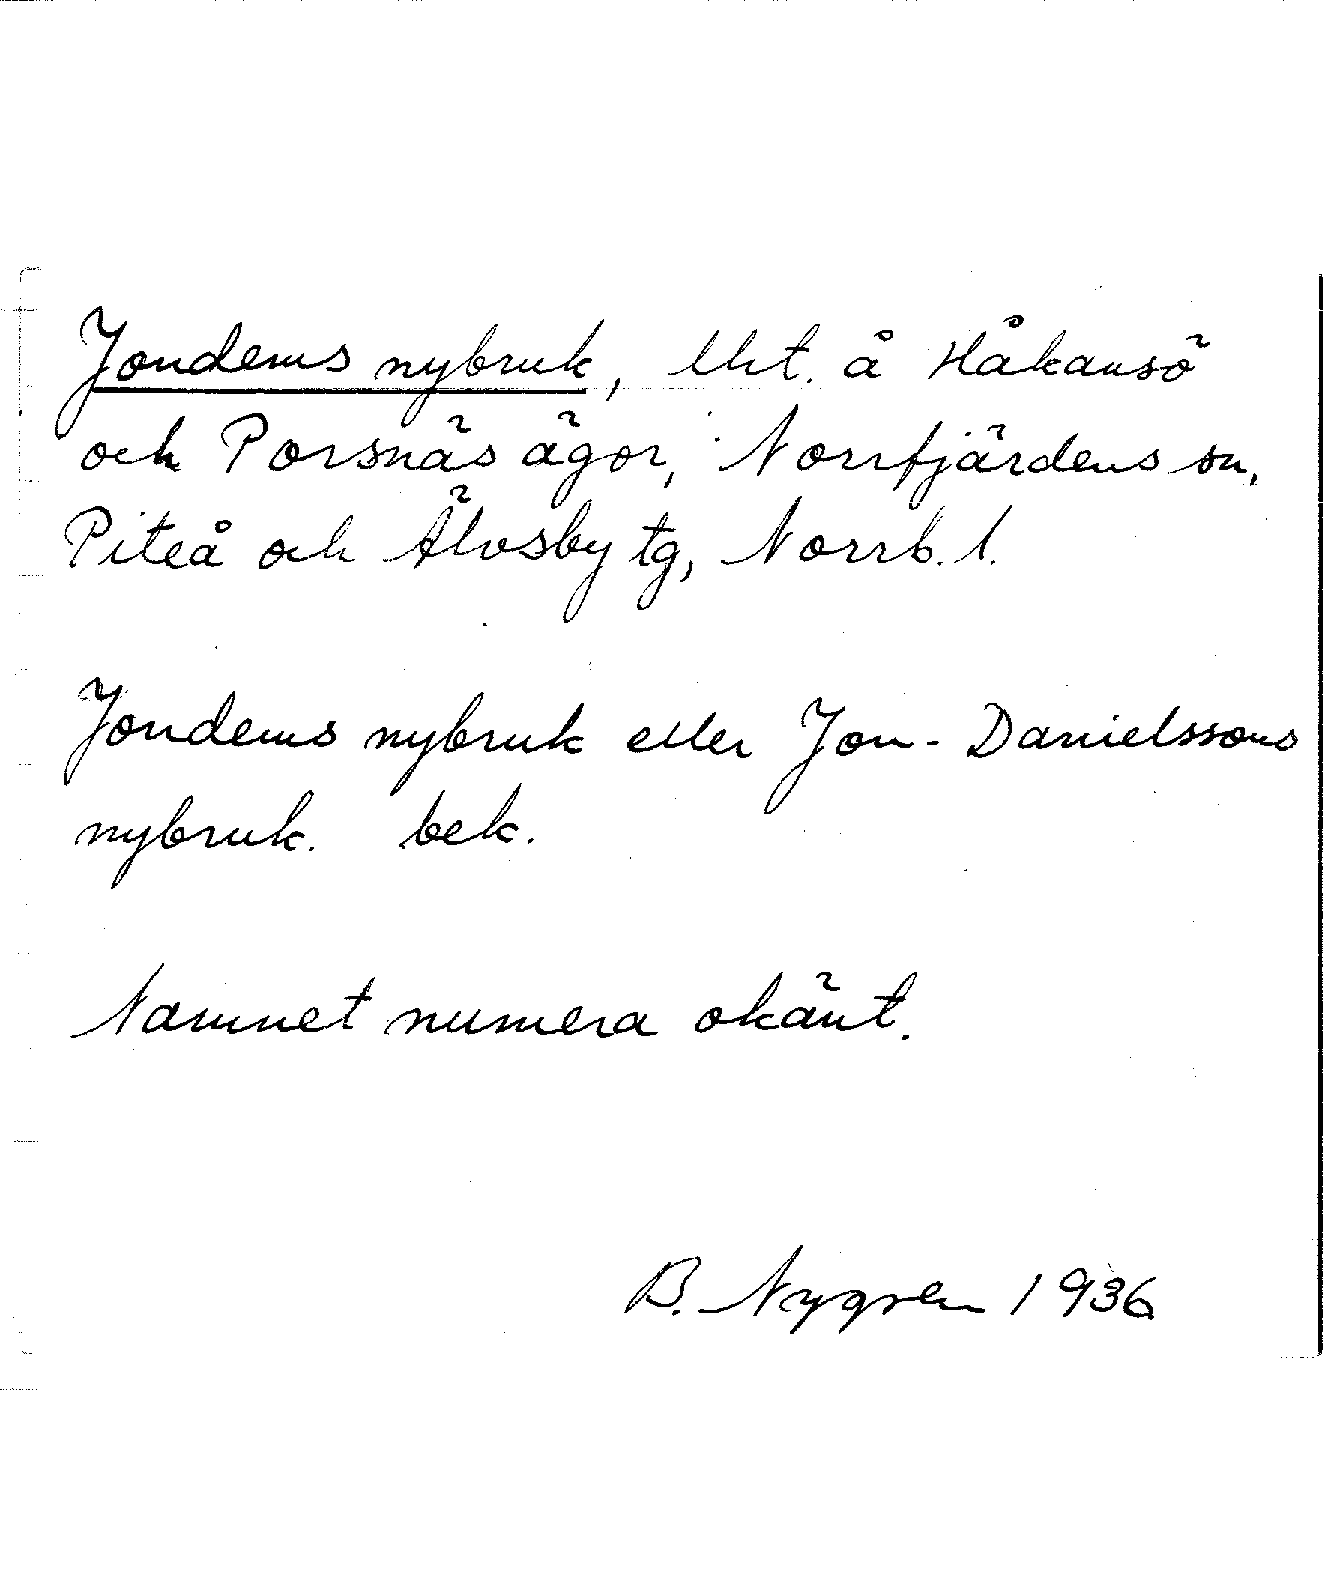 Jondens nybruk, lht. å Håkansö
och Porsnäs ägor, Norrfjärdens sn,
Piteå och Älvsby tg, Norrb. l.
Jondens nybruk eller Jon-Danielssons
nybruk. bek.
Namnet numera okänt.
B. Nygren 1936